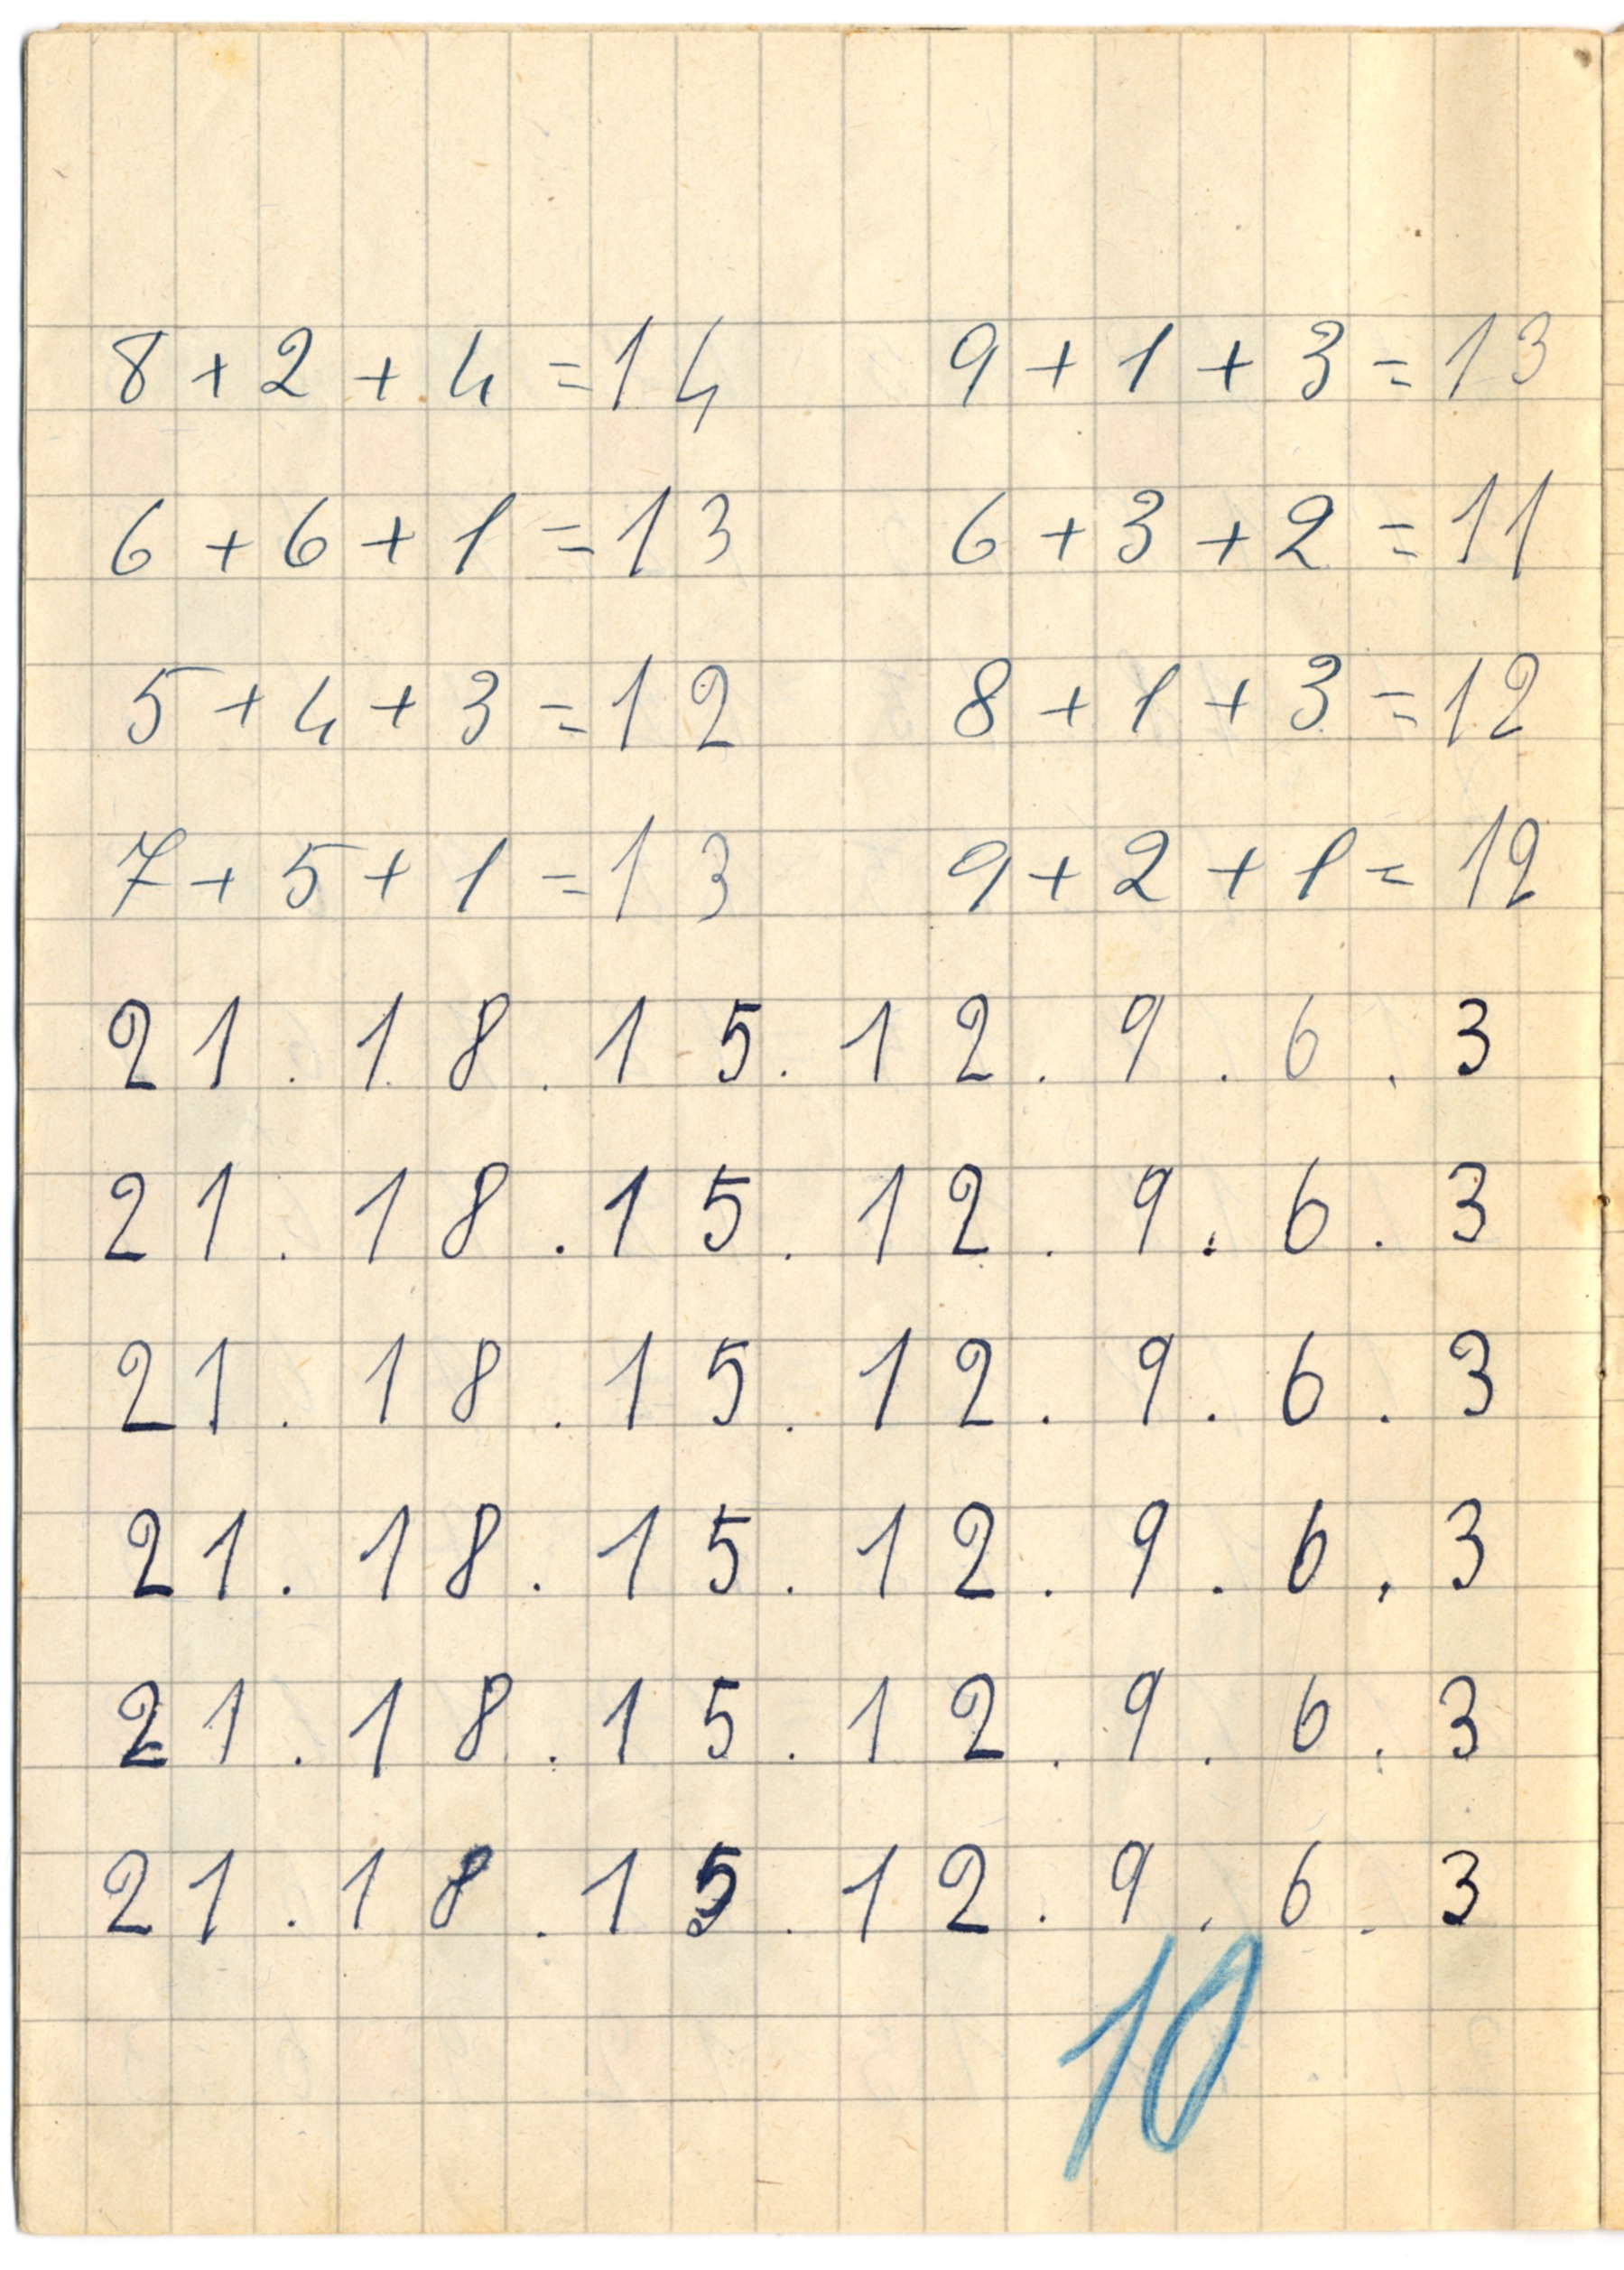 8 + 2 + 4 = 14 9 + 1 + 3 = 13
6 + 6 + 1 = 13 6 + 3 + 2 = 11
5 + 4 + 3 = 12 8 + 1 + 3 = 12
7 + 5 + 1 = 13 9 + 2 + 1 = 12
21 . 18 . 15 . 12 . 9 . 6 . 3
21 . 18 . 15 . 12 . 9 . 6 . 3
21 . 18 . 15 . 12 . 9 . 6 . 3
21 . 18 . 15 . 12 . 9 . 6 . 3
21 . 18 . 15 . 12 . 9 . 6 . 3
21 . 18 . 15 . 12 . 9 . 6 . 3
10